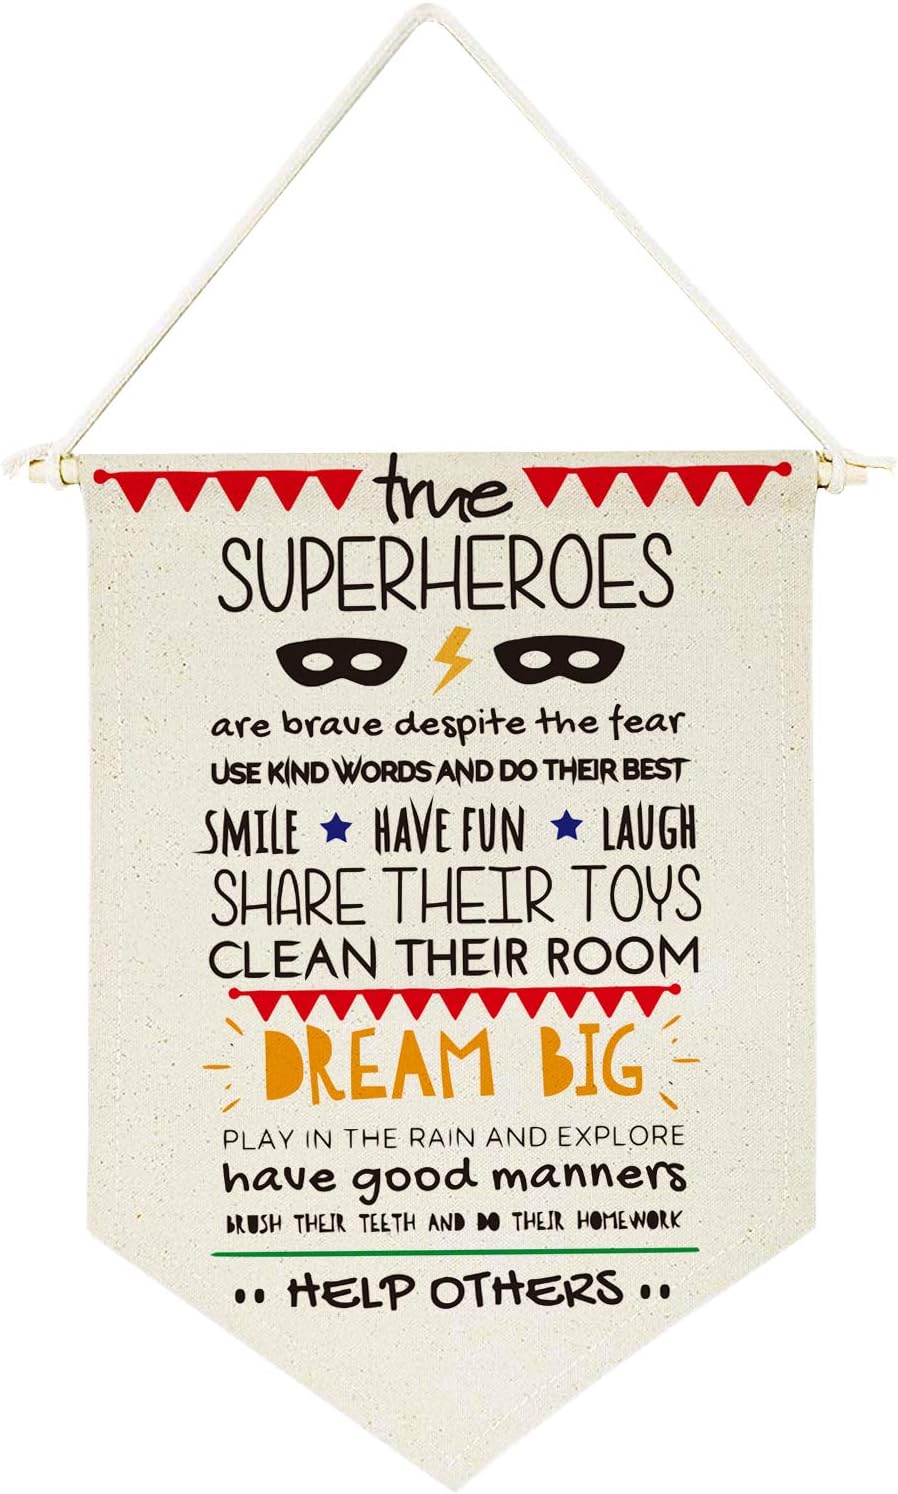 true
SUPERHEROES
are brave despite the fear
USE KIND WORDS AND DO THEIR BEST
SMILE ★ HAVE FUN ★ LAUGH
SHARE THEIR TOYS
CLEAN THEIR ROOM
DREAM BIG
PLAY IN THE RAIN AND EXPLORE
have good manners
BRUSH THEIR TEETH AND DO THEIR HOMEWORK
•• HELP OTHERS ••